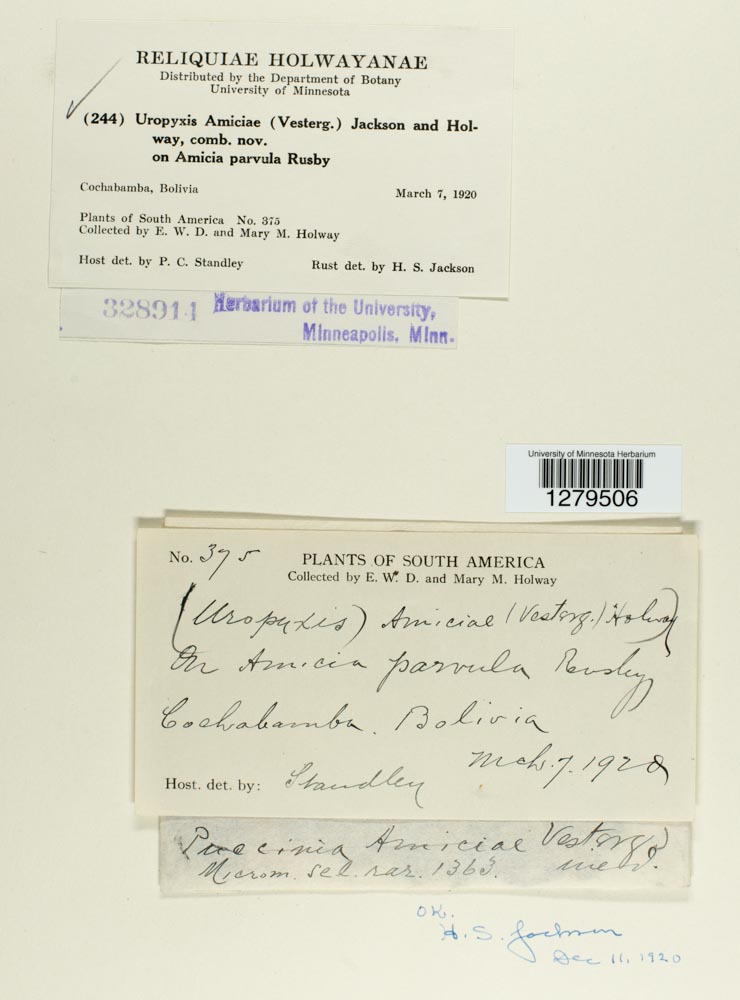 RELIQUIAE HOLWAYANAE
Distributed by the Department of Botany
University of Minnesota
(244) Uropyxis Amiciae (Vesterg.) Jackson and Hol-
way, comb. nov.
on Amicia parvula Rusby
Cochabamba, Bolivia March 7, 1920
Plants of South America No. 375
Collected by E. W. D. and Mary M. Holway
Host det. by P. C. Standley Rust det. by H. S. Jackson
328914 Herbarium of the University,
Minneapolis, Minn.
University of Minnesota Herbarium
1279506
No. 375 PLANTS OF SOUTH AMERICA
Collected by E. W. D. and Mary M. Holway
(Uropyxis) Amiciae (Vesterg.) Holway
On Amicia parvula Rusby
Cochabamba. Bolivia
Mch. 7. 1920
Host. det. by: Standley
Puccinia Amiciae Vesterg.
Microm. sel. rar. 1363.
OK.
H. S. Jackson
Dec 11, 1920